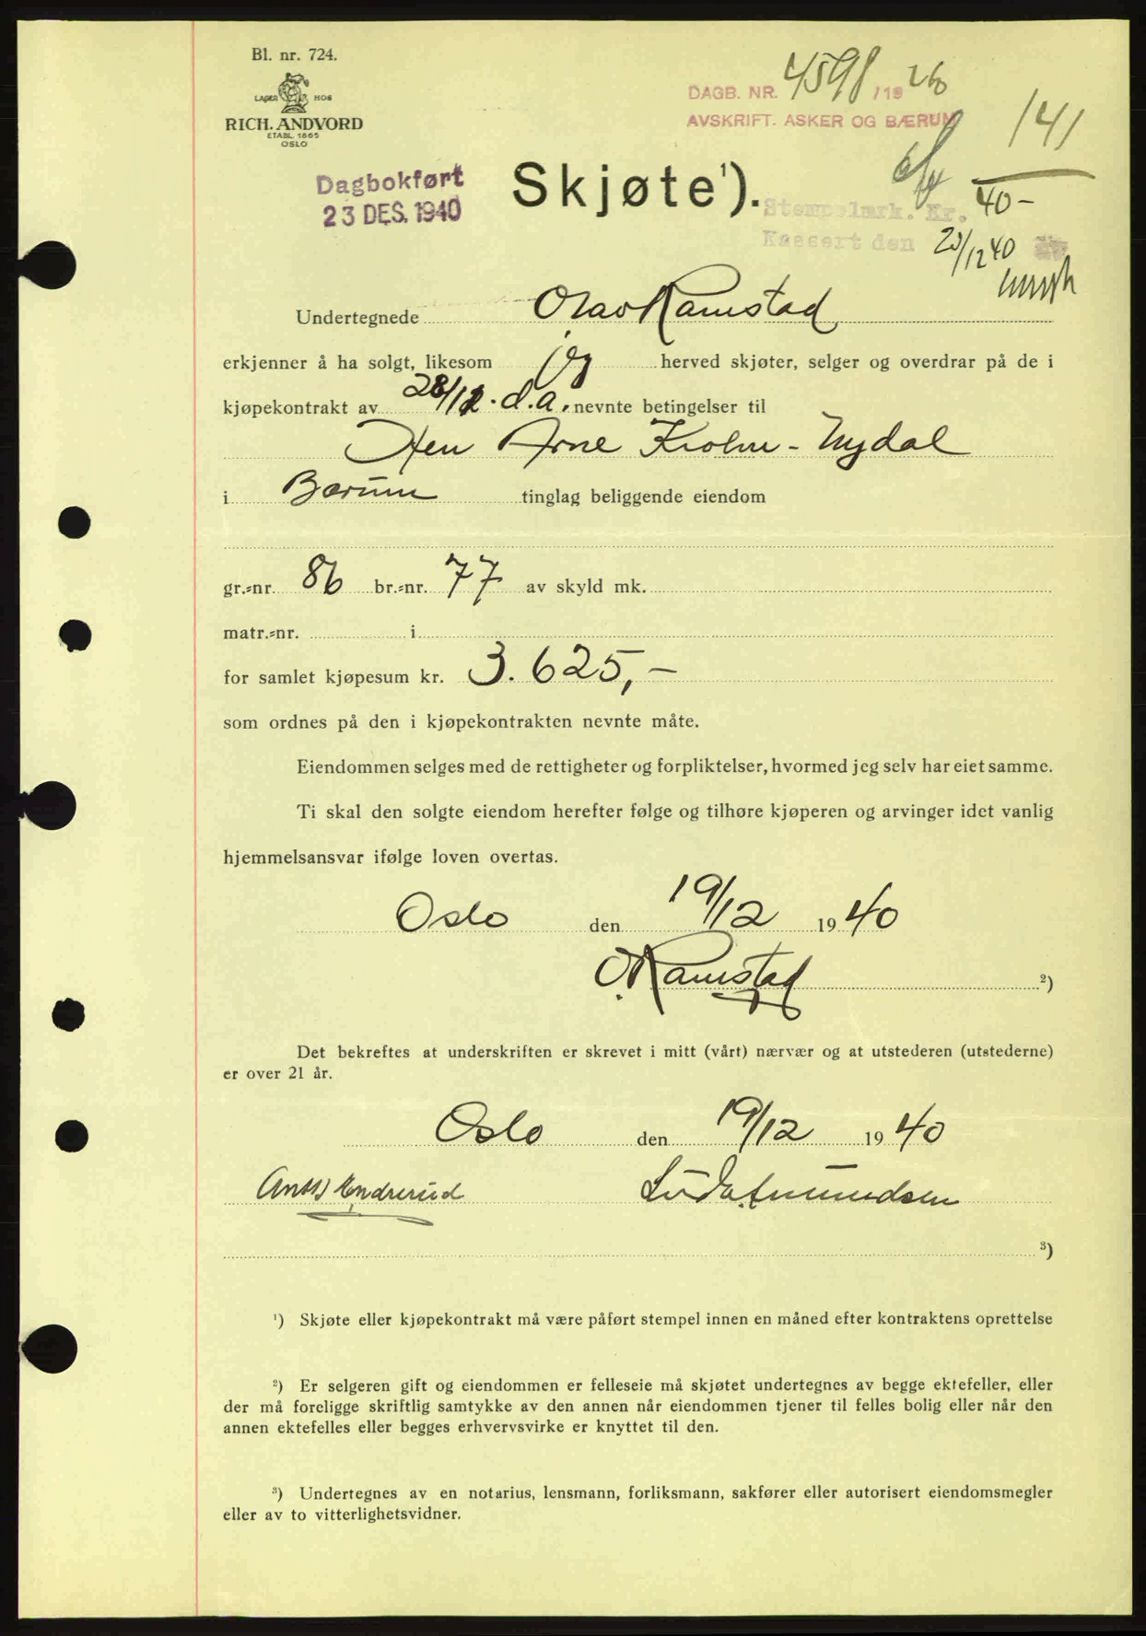 Bl. nr. 724.
LAGER HOS
RICH. ANDVORD
ETABL. 1865
OSLO
DAGB. NR. 4598 /19
AVSKRIFT. ASKER OG BÆRUM
141
Dagbokført
23 DES. 1940
Skjøte¹).
Stempelmrk. Kr. 40-
Kassert den 20/12 40
Undertegnede Olav Ramstad
erkjenner å ha solgt, likesom jeg herved skjøter, selger og overdrar på de i
kjøpekontrakt av d.a. nevnte betingelser til
Herr Arne Krohn-Nydal
i Bærum tinglag beliggende eiendom
gr.-nr. 86 br.-nr. 77 av skyld mk.
matr.-nr. i
for samlet kjøpesum kr. 3.625,-
som ordnes på den i kjøpekontrakten nevnte måte.
Eiendommen selges med de rettigheter og forpliktelser, hvormed jeg selv har eiet samme.
Ti skal den solgte eiendom herefter følge og tilhøre kjøperen og arvinger idet vanlig
hjemmelsansvar ifølge loven overtas.
Oslo den 19/12 1940
O. Ramstad ²)
Det bekreftes at underskriften er skrevet i mitt (vårt) nærvær og at utstederen (utstederne)
er over 21 år.
Oslo den 19/12 1940
³)
¹) Skjøte eller kjøpekontrakt må være påført stempel innen en måned efter kontraktens oprettelse
²) Er selgeren gift og eiendommen er felleseie må skjøtet undertegnes av begge ektefeller, eller
der må foreligge skriftlig samtykke av den annen når eiendommen tjener til felles bolig eller når den
annen ektefelles eller begges erhvervsvirke er knyttet til den.
³) Undertegnes av en notarius, lensmann, forliksmann, sakfører eller autorisert eiendomsmegler
eller av to vitterlighetsvidner.